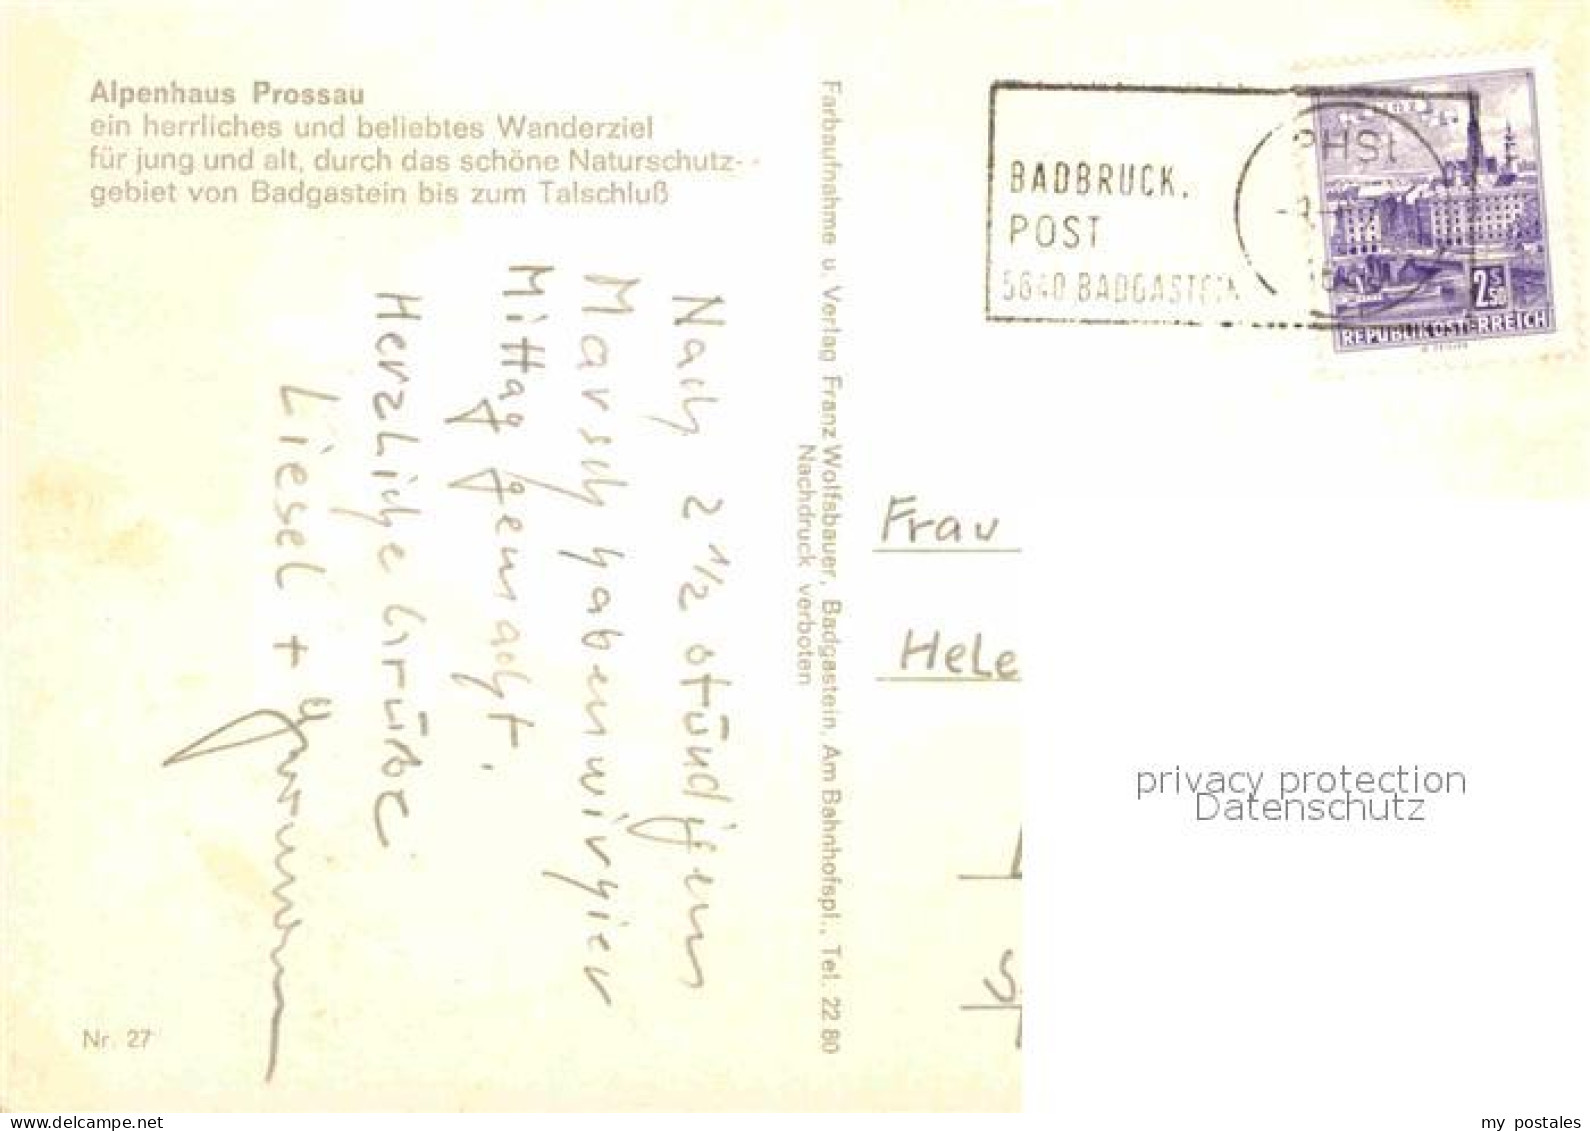 Alpenhaus Prossau
ein herrliches und beliebtes Wanderziel
für jung und alt, durch das schöne Naturschutz-
gebiet von Badgastein bis zum Talschluß
Nach 2 1/2 stündigem
Marsch haben wir hier
Mittag gemacht.
Herzliche Grüße
Liesel +
Nr. 27
Farbaufnahme u. Verlag Franz Wolfsbauer, Badgastein, Am Bahnhofspl., Tel. 22 80
Nachdruck verboten
BADBRUCK.
POST
5640 BADGASTEIN
2 S 50
REPUBLIK ÖSTERREICH
Frau
Hele
privacy protection
Datenschutz
oldthing.net
my postales